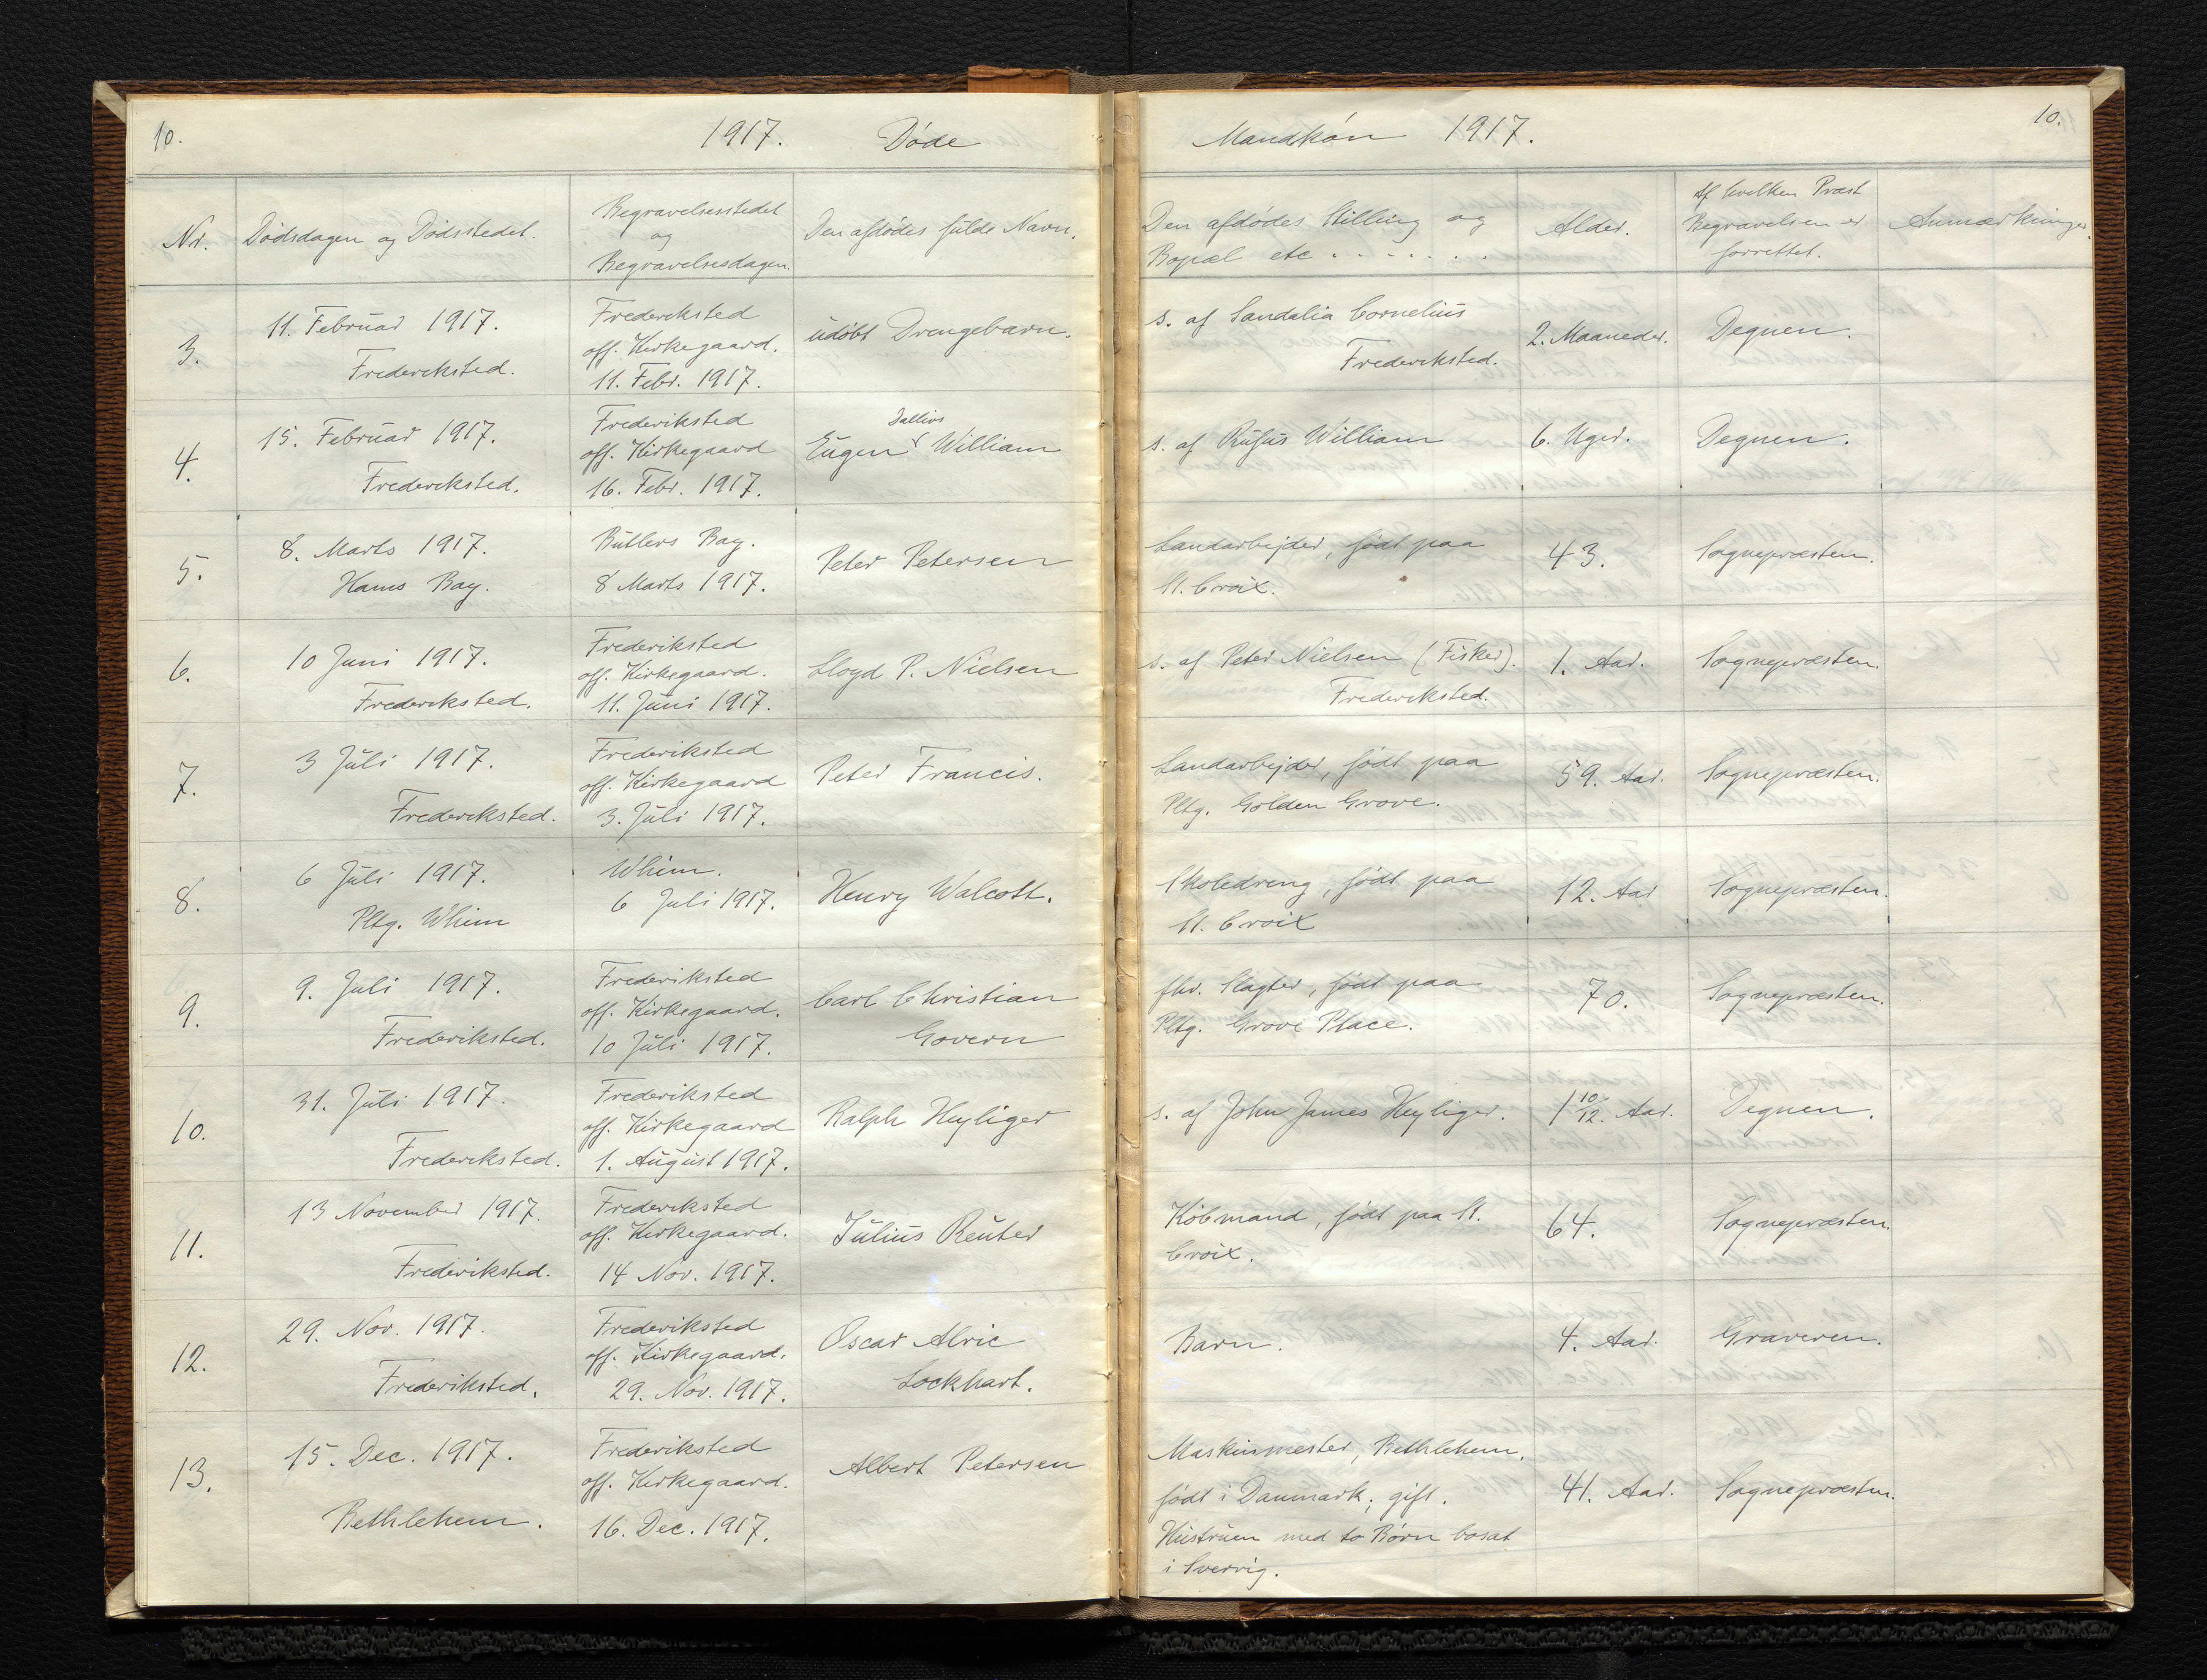 10.
1917. Døde
Mandkøn 1917.
10.
Nr.
Dødsdagen og Dødsstedet.
Begravelsesstedet
og
Begravelsesdagen.
Den afdødes fulde Navn.
Den afdødes Stilling og
Bopæl etc . . . . . . .
Alder.
Af hvilken Præst
Begravelsen er
forrettet.
Anmærkninger.
3.
11. Februar 1917.
Frederiksted.
Frederiksted
off. Kirkegaard.
11. Febr. 1917.
udøbt Drengebarn.
s. af Sandalia Cornelius
Frederiksted.
2. Maaneder.
Degnen.
4.
15. Februar 1917.
Frederiksted.
Frederiksted
off. Kirkegaard
16. Febr. 1917.
Eugen William
s. af Rufus William
6. Uger.
Degnen.
5.
8. Marts 1917.
Hams Bay.
Butlers Bay.
8 Marts 1917.
Peter Petersen
Landarbejder, født paa
St. Croix.
43.
Sognepræsten.
6.
10 Juni 1917.
Frederiksted.
Frederiksted
off. Kirkegaard.
11. Juni 1917.
Lloyd P. Nielsen
s. af Peter Nielsen (Fisker).
Frederiksted.
1. Aar.
Sognepræsten.
7.
3 Juli 1917.
Frederiksted.
Frederiksted
off. Kirkegaard
3. Juli 1917.
Peter Francis.
Landarbejder, født paa
Pltg. Golden Grove.
59. Aar.
Sognepræsten.
8.
6 Juli 1917.
Pltg. Whim
Whim.
6 Juli 1917.
Henry Walcott.
Skoledreng, født paa
St. Croix
12. Aar
Sognepræsten.
9.
9. Juli 1917.
Frederiksted.
Frederiksted
off. Kirkegaard.
10 Juli 1917.
Carl Christian
Govern
fhv. Slagter, født paa
Pltg. Grove Place.
70.
Sognepræsten.
10.
31. Juli 1917.
Frederiksted.
Frederiksted
off. Kirkegaard
1. August 1917.
Ralph Heyliger
s. af John James Heyliger.
1 10/12. Aar.
Degnen.
11.
13 November 1917.
Frederiksted.
Frederiksted
off. Kirkegaard.
14 Nov. 1917.
Julius Reuter
Købmand, født paa St.
Croix.
64.
Sognepræsten.
12.
29. Nov. 1917.
Frederiksted.
Frederiksted
off. Kirkegaard.
29. Nov. 1917.
Oscar Alric
Lockhart.
Barn.
4. Aar.
Graveren.
13.
15. Dec. 1917.
Bethlehem.
Frederiksted
off. Kirkegaard.
16. Dec. 1917.
Albert Petersen
Maskinmester, Bethlehem,
født i Danmark, gift.
Hustruen med to Børn bosat
i Sverrig.
41. Aar.
Sognepræsten.